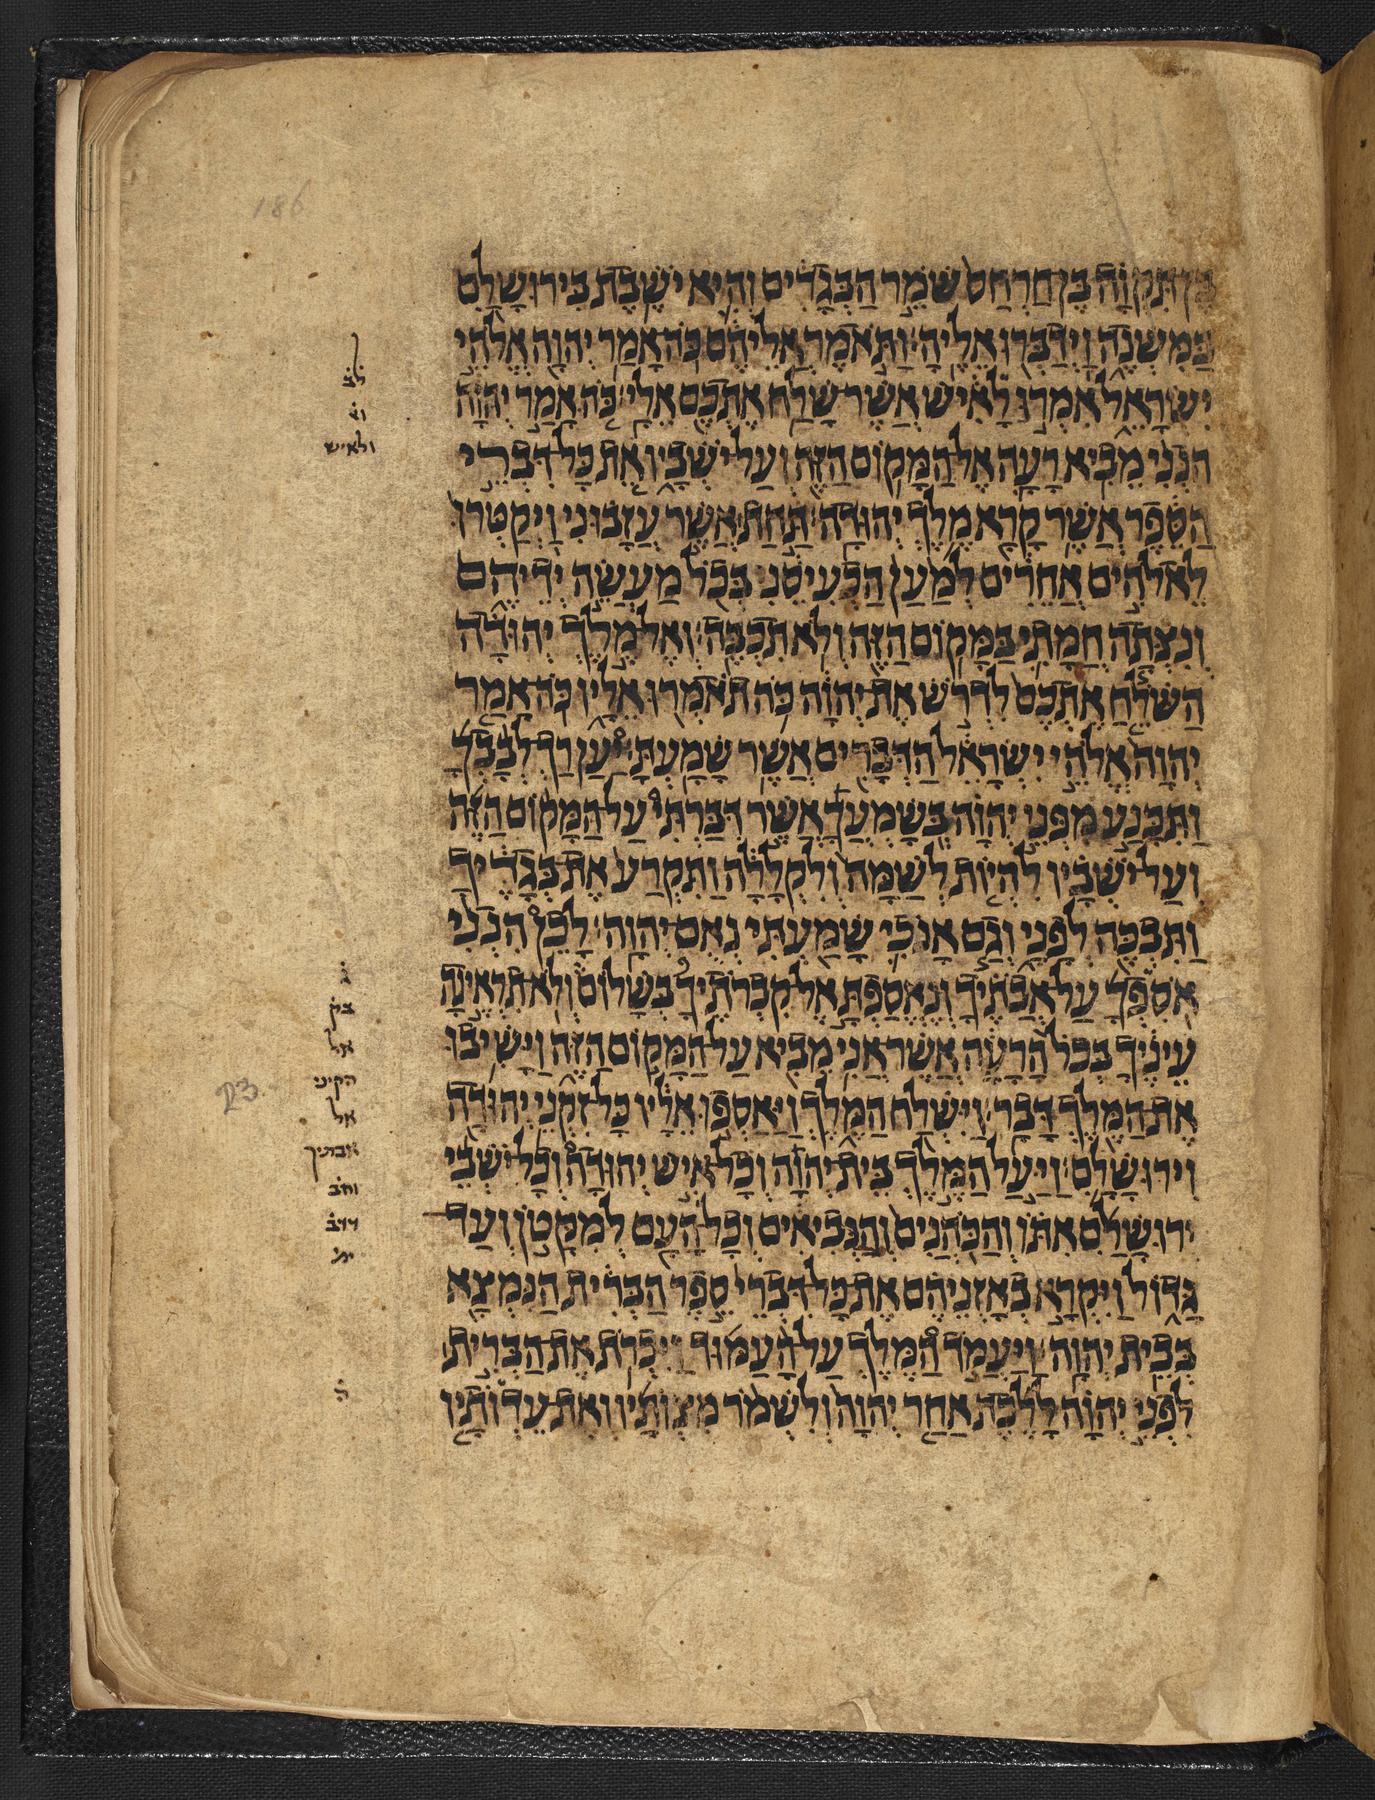 186
בֶּן תִּקְוָה בֶּן חַרְחַס שֹׁמֵר הַבְּגָדִים וְהִיא יֹשֶׁבֶת בִּירוּשָׁלִַם
בַּמִּשְׁנֶה וַיְדַבְּרוּ אֵלֶיהָ׃ וַתֹּאמֶר אֲלֵיהֶם כֹּה אָמַר יְהוָה אֱלֹהֵי
יִשְׂרָאֵל אִמְרוּ לָאִישׁ אֲשֶׁר שָׁלַח אֶתְכֶם אֵלָי׃ כֹּה אָמַר יְהוָה
הִנְנִי מֵבִיא רָעָה אֶל הַמָּקוֹם הַזֶּה וְעַל יֹשְׁבָיו אֵת כָּל דִּבְרֵי
הַסֵּפֶר אֲשֶׁר קָרָא מֶלֶךְ יְהוּדָה׃ תַּחַת אֲשֶׁר עֲזָבוּנִי וַיְקַטְּרוּ
לֵאלֹהִים אֲחֵרִים לְמַעַן הַכְעִיסֵנִי בְּכֹל מַעֲשֵׂה יְדֵיהֶם
וְנִצְּתָה חֲמָתִי בַּמָּקוֹם הַזֶּה וְלֹא תִכְבֶּה׃ וְאֶל מֶלֶךְ יְהוּדָה
הַשֹּׁלֵחַ אֶתְכֶם לִדְרֹשׁ אֶת יְהוָה כֹּה תֹאמְרוּ אֵלָיו כֹּה אָמַר
יְהוָה אֱלֹהֵי יִשְׂרָאֵל הַדְּבָרִים אֲשֶׁר שָׁמָעְתָּ׃ יַעַן רַךְ לְבָבְךָ
וַתִּכָּנַע מִפְּנֵי יְהוָה בְּשָׁמְעֲךָ אֲשֶׁר דִּבַּרְתִּי עַל הַמָּקוֹם הַזֶּה
וְעַל יֹשְׁבָיו לִהְיוֹת לְשַׁמָּה וְלִקְלָלָה וַתִּקְרַע אֶת בְּגָדֶיךָ
וַתִּבְכֶּה לְפָנָי וְגַם אָנֹכִי שָׁמַעְתִּי נְאֻם יְהוָה׃ לָכֵן הִנְנִי
אֹסִפְךָ עַל אֲבֹתֶיךָ וְנֶאֱסַפְתָּ אֶל קִבְרֹתֶיךָ בְּשָׁלוֹם וְלֹא תִרְאֶינָה
עֵינֶיךָ בְּכֹל הָרָעָה אֲשֶׁר אֲנִי מֵבִיא עַל הַמָּקוֹם הַזֶּה וַיָּשִׁיבוּ
אֶת הַמֶּלֶךְ דָּבָר׃ וַיִּשְׁלַח הַמֶּלֶךְ וַיַּאַסְפוּ אֵלָיו כָּל זִקְנֵי יְהוּדָה
וִירוּשָׁלִָם׃ וַיַּעַל הַמֶּלֶךְ בֵּית יְהוָה וְכָל אִישׁ יְהוּדָה וְכָל יֹשְׁבֵי
יְרוּשָׁלִַם אִתּוֹ וְהַכֹּהֲנִים וְהַנְּבִיאִים וְכָל הָעָם לְמִקָּטֹן וְעַד
גָּדוֹל וַיִּקְרָא בְאָזְנֵיהֶם אֶת כָּל דִּבְרֵי סֵפֶר הַבְּרִית הַנִּמְצָא
בְּבֵית יְהוָה׃ וַיַּעֲמֹד הַמֶּלֶךְ עַל הָעַמּוּד וַיִּכְרֹת אֶת הַבְּרִית
לִפְנֵי יְהוָה לָלֶכֶת אַחַר יְהוָה וְלִשְׁמֹר מִצְוֹתָיו וְאֶת עֵדְוֹתָיו
לב
וג
ולאיש
ג
אל
הקיני
אל
אבותיך
23